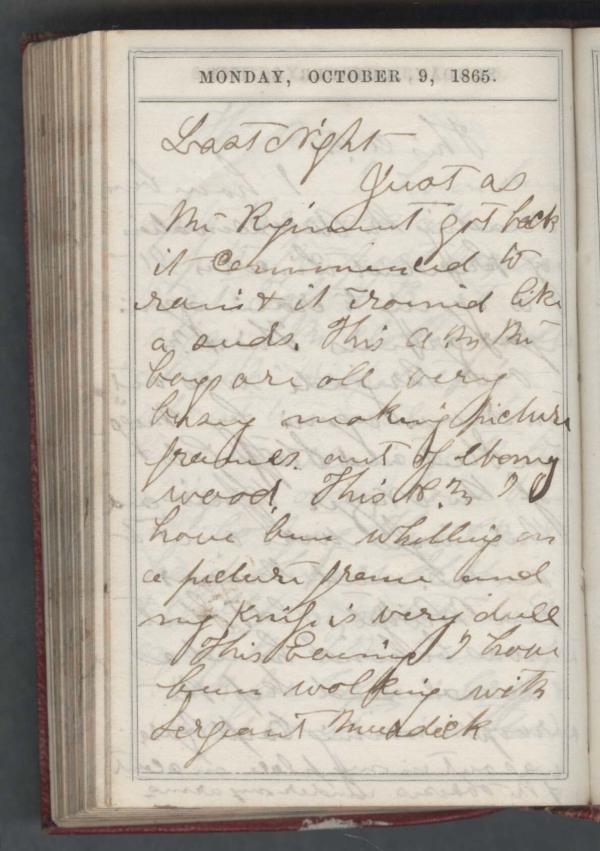 MONDAY, OCTOBER 9, 1865.
Last Night
Just as
the Regiment got back
it commenced to
rain & it rained like
a suds. This A M the
boys are all very
busy making picture
frames. out of ebony
wood. This P. M I
have been whittling on
a picture frame and
my Knife is very dull
This Evening I have
been walking with
Sergeant Murdick